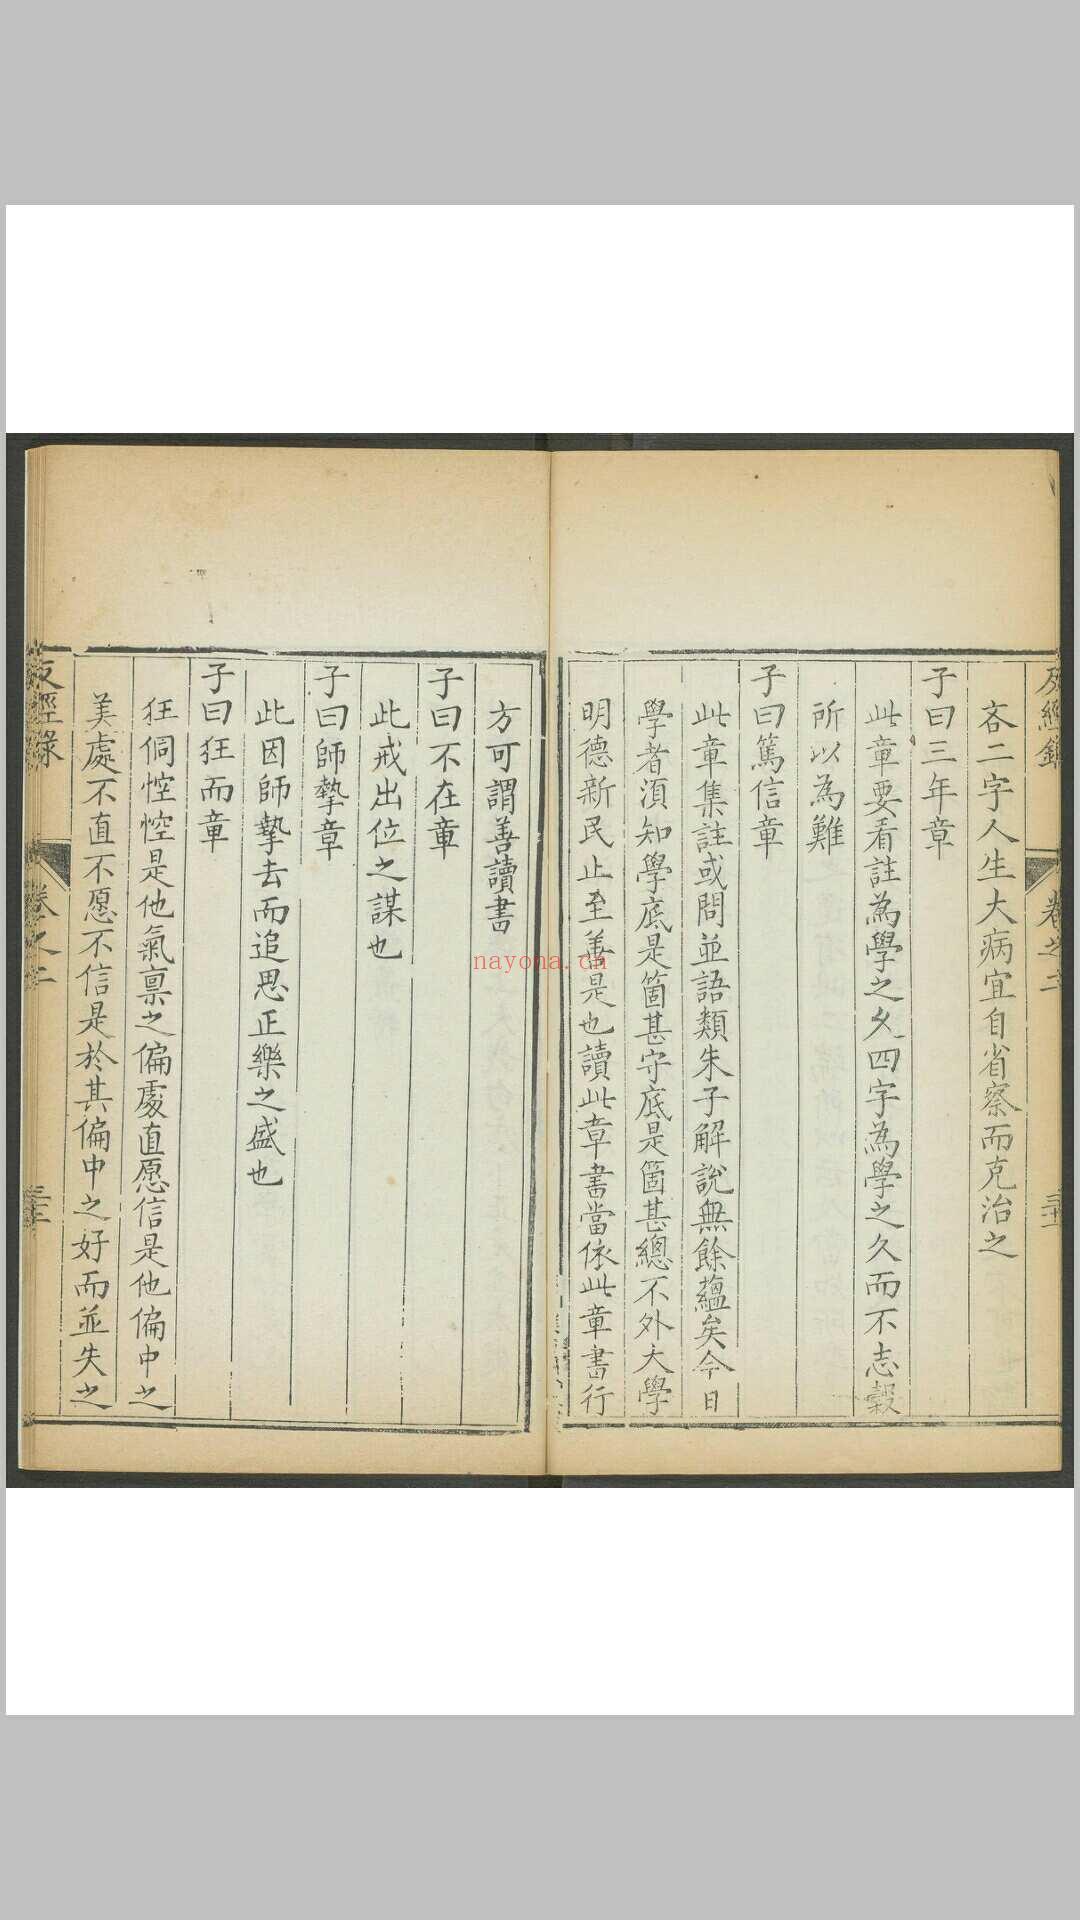 反經錄
卷之二
三十一
吝二字人生大病宜自省察而克治之
子曰三年章
此章要看註為學之久四字為學之久而不志穀
所以為難
子曰篤信章
此章集註或問並語類朱子解說無餘蘊矣今日
學者須知學底是箇甚守底是箇甚總不外大學
明德新民止至善是也讀此章書當依此章書行
方可謂善讀書
子曰不在章
此戒出位之謀也
子曰師摯章
此因師摯去而追思正樂之盛也
子曰狂而章
狂侗悾悾是他氣稟之偏處直愿信是他偏中之
美處不直不愿不信是於其偏中之好而並失之
反經錄
卷之二
nayona.cn